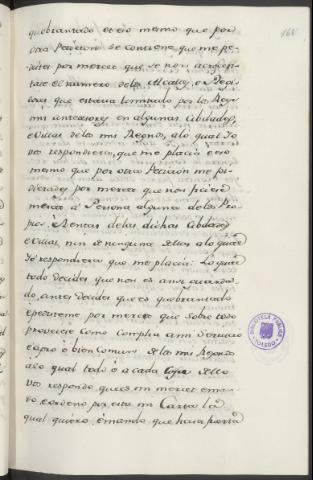 160
quebrantado: et eso mesmo que por
otra Peticion se contiene que me pe-
distes por merced que se non acrecen-
tase el numero de los Alcaldes, e Regi-
dores que estaba limitado por los Reyes
mis antecesores en algunas Cibdades,
e Villas de los mis Regnos, a lo qual Yo
vos respondiera, que me placia: e eso
mesmo que por otra Peticion me pi-
dierades por merced que non ficiese
merced á Persona alguna de los Pro-
pios, é Rentas de las dichas Cibdades
e Villas, nin de ninguna dellas a lo qual
Yo respondiera que me placia: Lo qual
todo decides que non es ansi guarda-
do, antes decides que es quebrantado
e pedisteme por merced que sobre todo
proveyese como cumplia a mi servicio
e a pro é bien comun de los mis Regnos
a lo qual todo é a cada cosa dello
vos respondo que es mi merced em-
bio e ordeno por esta mi Carta la
qual quiero, é mando que haya fuerza
BIBLIOTECA PUBLICA
TOLEDO